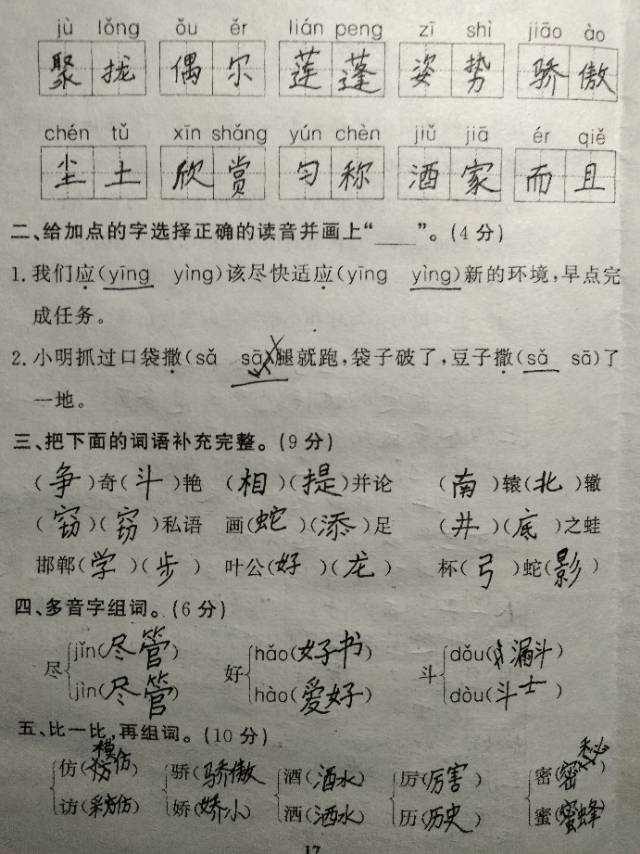 jù lǒng ǒu ěr lián peng zī shì jiāo ào
聚拢 偶尔 莲蓬 姿势 骄傲
chén tǔ xīn shǎng yún chèn jiǔ jiā ér qiě
尘土 欣赏 匀称 酒家 而且
二、给加点的字选择正确的读音并画上“____”。(4分)
1.我们应(yīng yìng)该尽快适应(yīng yìng)新的环境,早点完
成任务。
2.小明抓过口袋撒(sǎ sā)腿就跑,袋子破了,豆子撒(sǎ sā)了
一地。
三、把下面的词语补充完整。(9分)
(争)奇(斗)艳 (相)(提)并论 (南)辕(北)辙
(窃)(窃)私语 画(蛇)(添)足 (井)(底)之蛙
邯郸(学)(步) 叶公(好)(龙) 杯(弓)蛇(影)
四、多音字组词。(6分)
尽 jǐn(尽管) 好 hǎo(好书) 斗 dǒu(漏斗)
jìn(尽管) hào(爱好) dòu(斗士)
五、比一比,再组词。(10分)
仿(模仿) 骄(骄傲) 酒(酒水) 厉(厉害) 密(秘密)
访(采访) 娇(娇小) 洒(洒水) 历(历史) 蜜(蜜蜂)
17